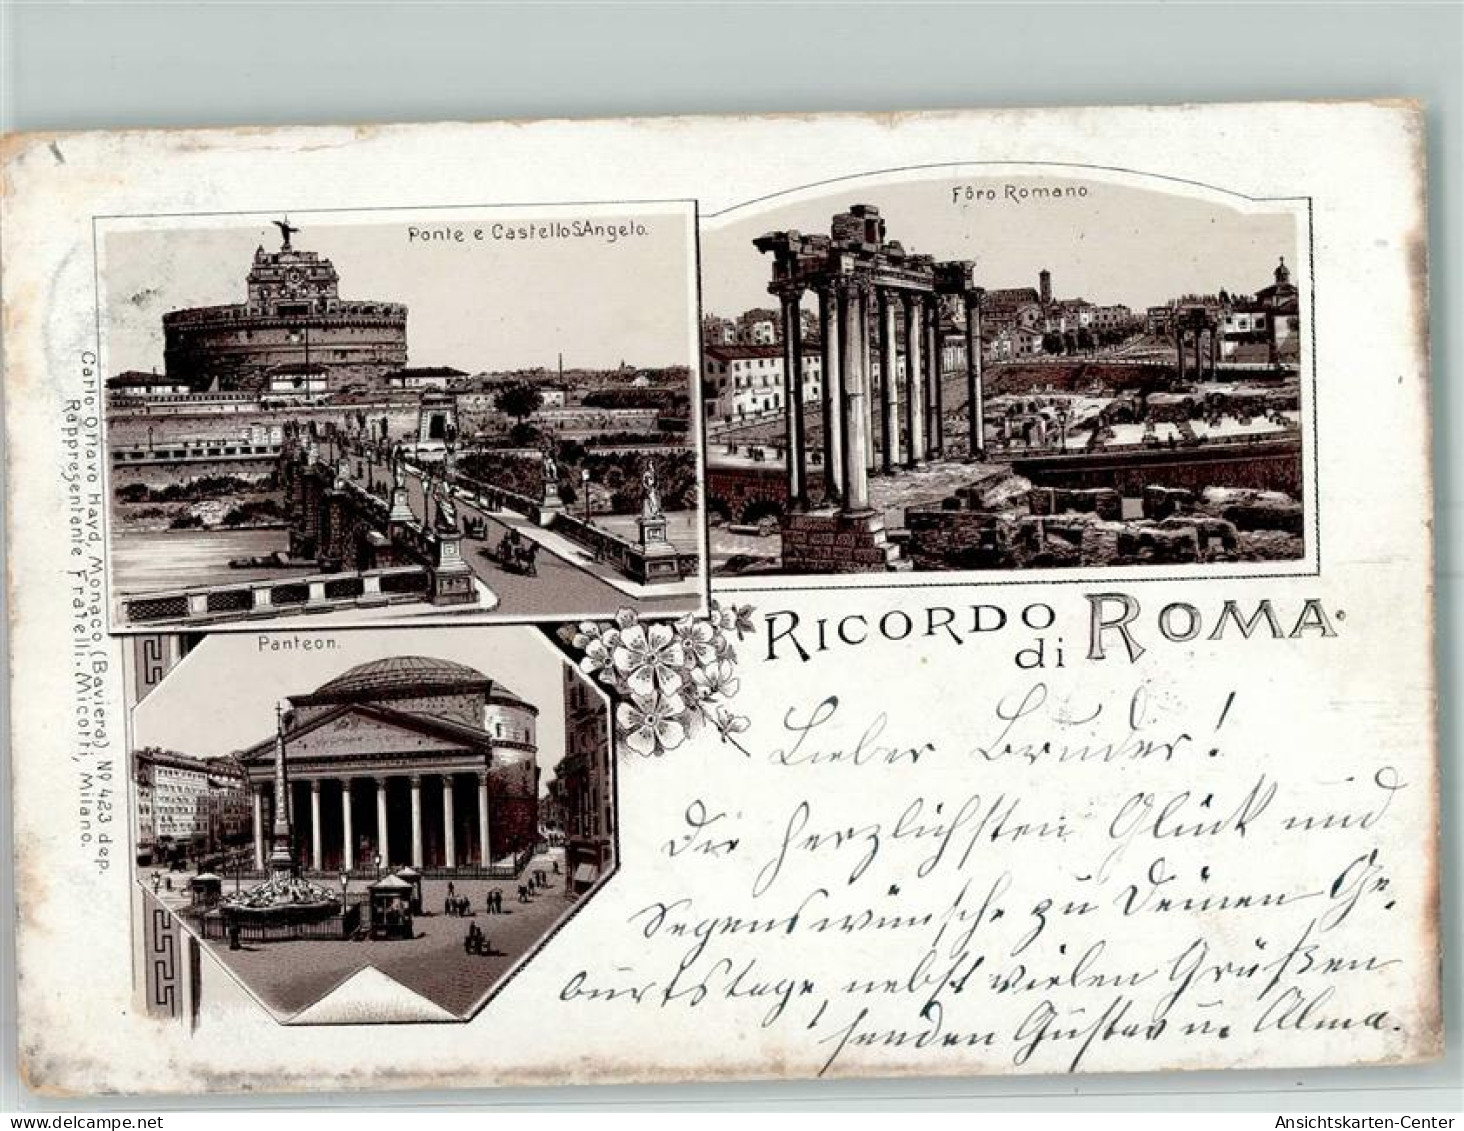 Ponte e Castello S.Angelo.
Fôro Romano
Panteon.
RICORDO
di ROMA.
Carlo Ottavo Hayd, Monaco, (Baviera) Nº 423 dep.
Rappresentante Fratelli Micotti, Milano.
Lieber Bruder!
Die herzlichsten Glück und
Segenswünsche zu Deinen Ge-
burtstage, nebst vielen Grüßen
senden Gustav u. Alma.
Ansichtskarten-Center